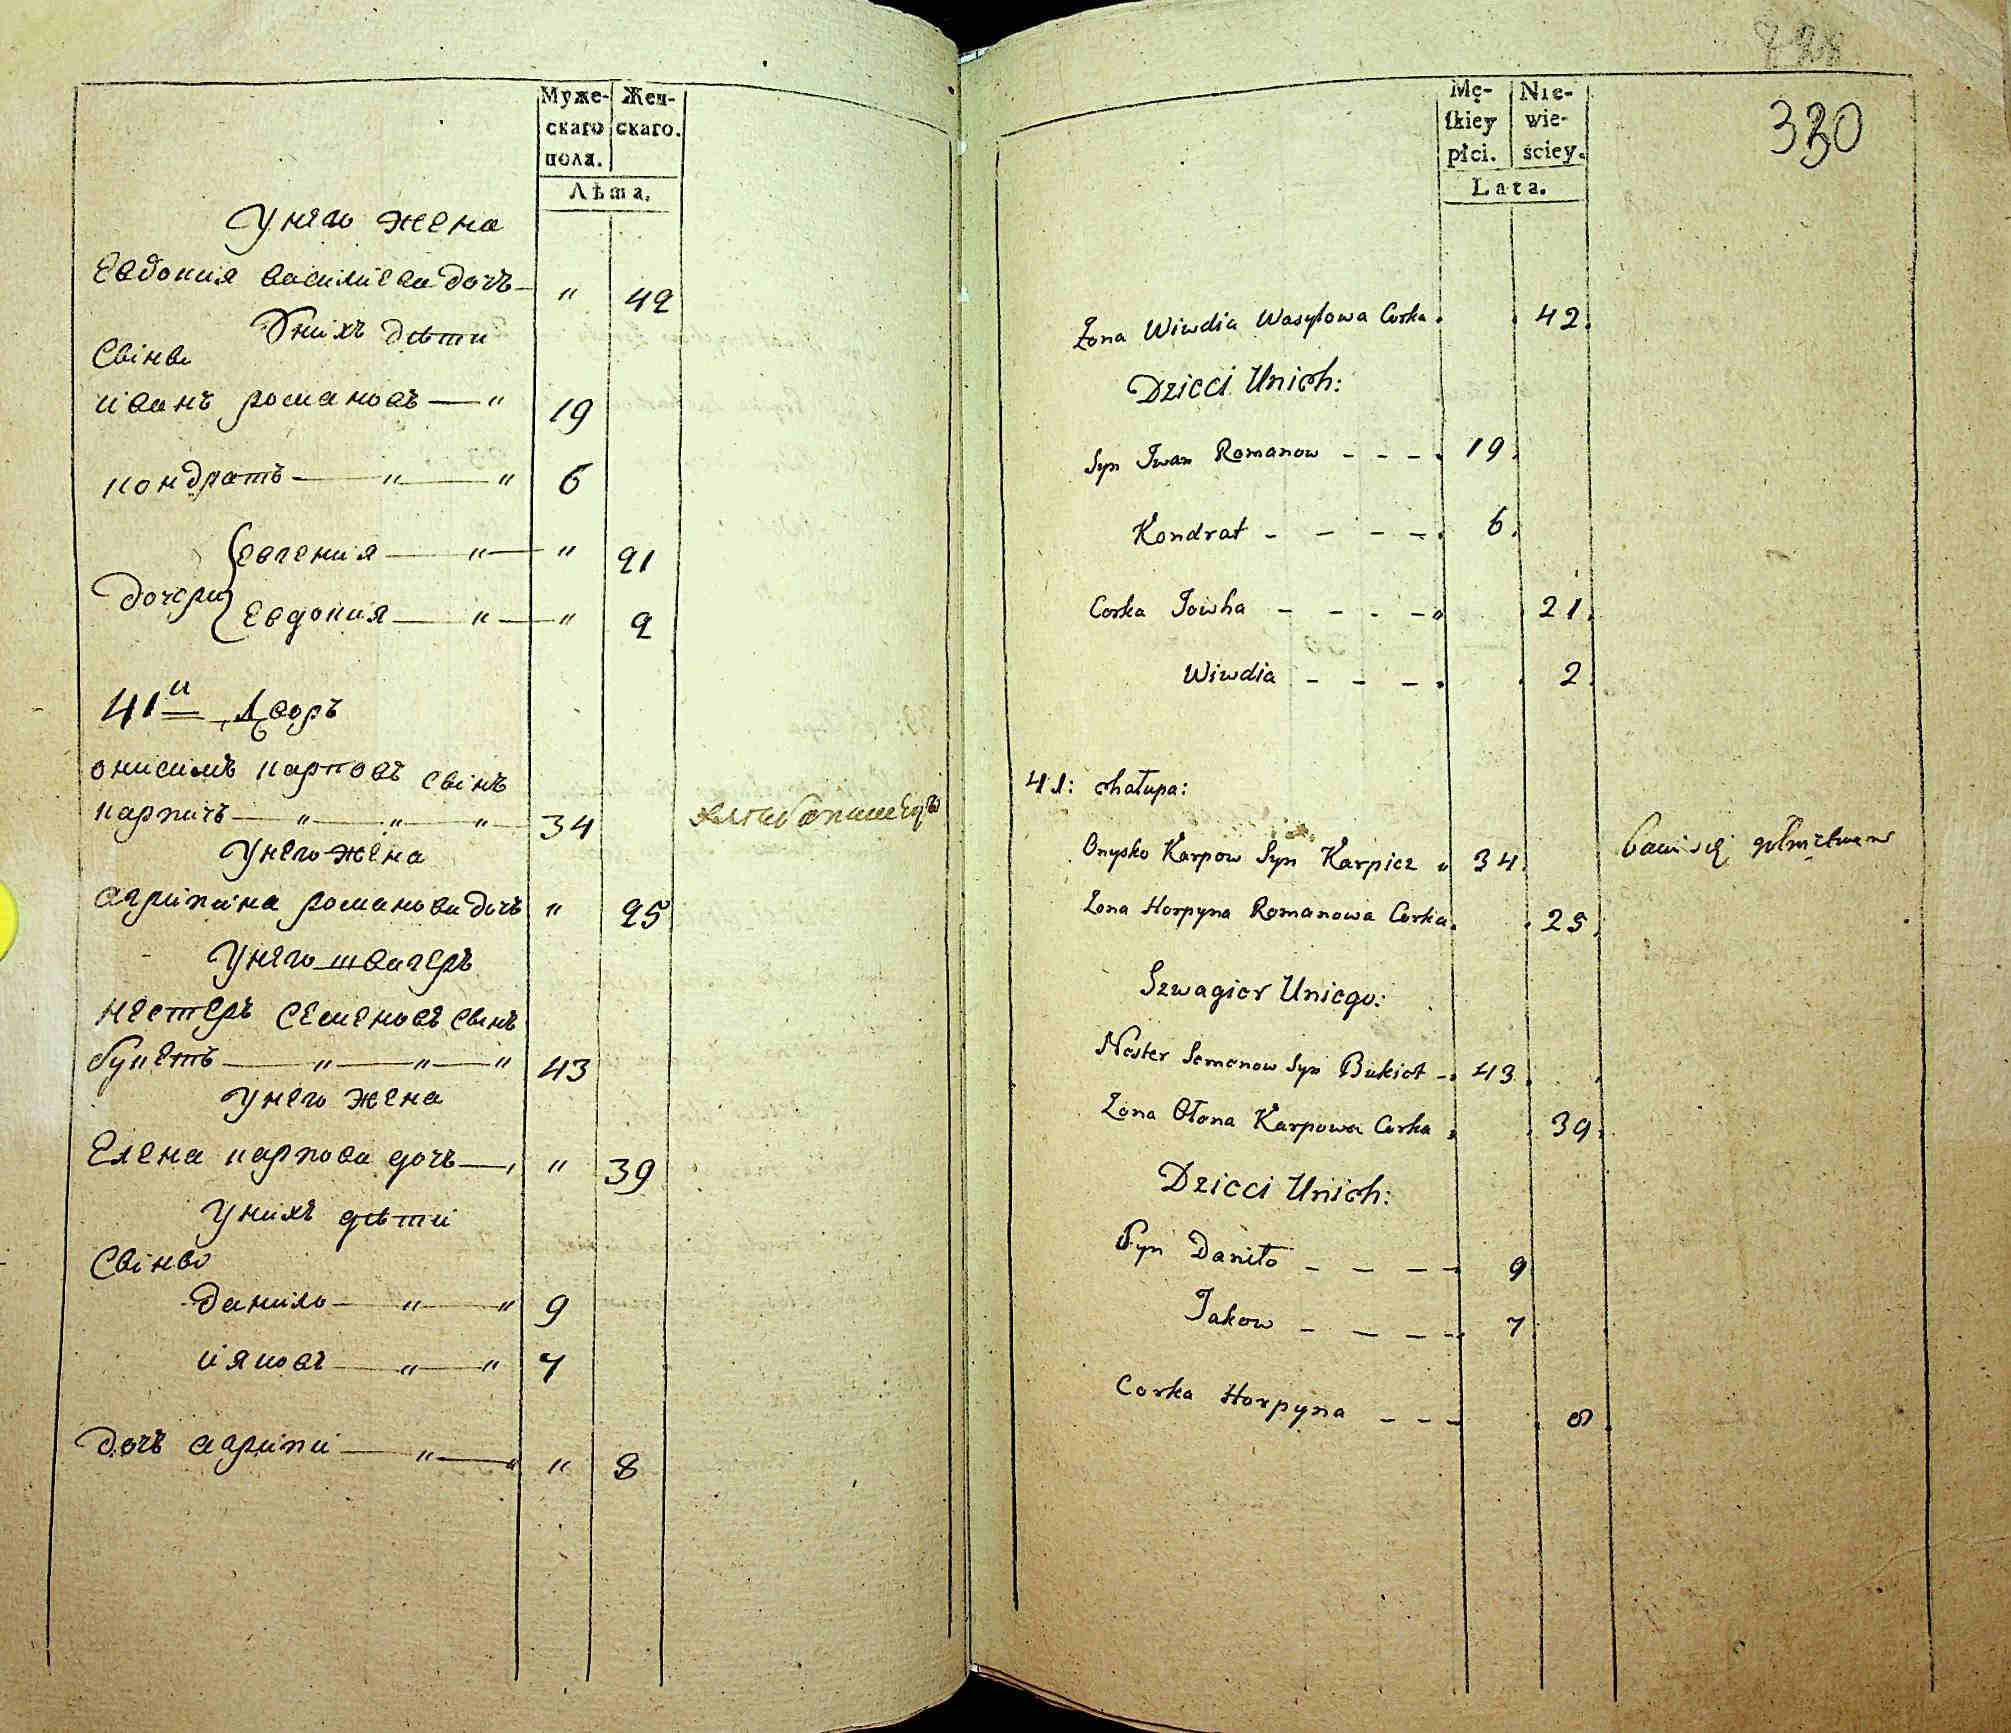 Муже-
скаго
пола.
Жен-
скаго.
Лѣта.
у него жена
Евдокия василиева дочъ — " 42
У нихъ дѣти
Сыновя
иванъ романовъ — " 19
кондратъ — " — " 6
дочери
евгения — " — " 21
Евдокия — " — " 2
41й дворъ
онисимъ карповъ сынъ
карпичъ — " — " — " 34
у него жена
агрипина романова дочъ " 25
у него швагеръ
нестеръ семеновъ сынъ
букетъ — " — " — " 43
у него жена
Елена карпова дочъ — " 39
у нихъ дѣти
Сынове
данило — " — " 9
ияковъ — " — " 7
дочъ агрипи — " — " 8
330
Mę-
ſkiey
płci.
Nie-
wie-
ściey.
Lata.
Żona Wiwdia Wasylowa Corka . 42.
Dzieci Unich:
Syn Iwan Romanow - - - . 19.
Kondrat - - - - . 6.
Corka Jowha - - - - 21.
Wiwdia - - - . 2.
41: chałupa:
Onysko Karpow Syn Karpicz " 34. bawi się
Żona Horpyna Romanowa Corka . 25.
Szwagier Uniego:
Nester Semenow Syn Bukiet - . 43.
Żona Ołena Karpowa Corka . 39.
Dzieci Unich:
Syn Daniło - - - - 9
Jakow - - - - 7.
Corka Horpyna - - - 8.